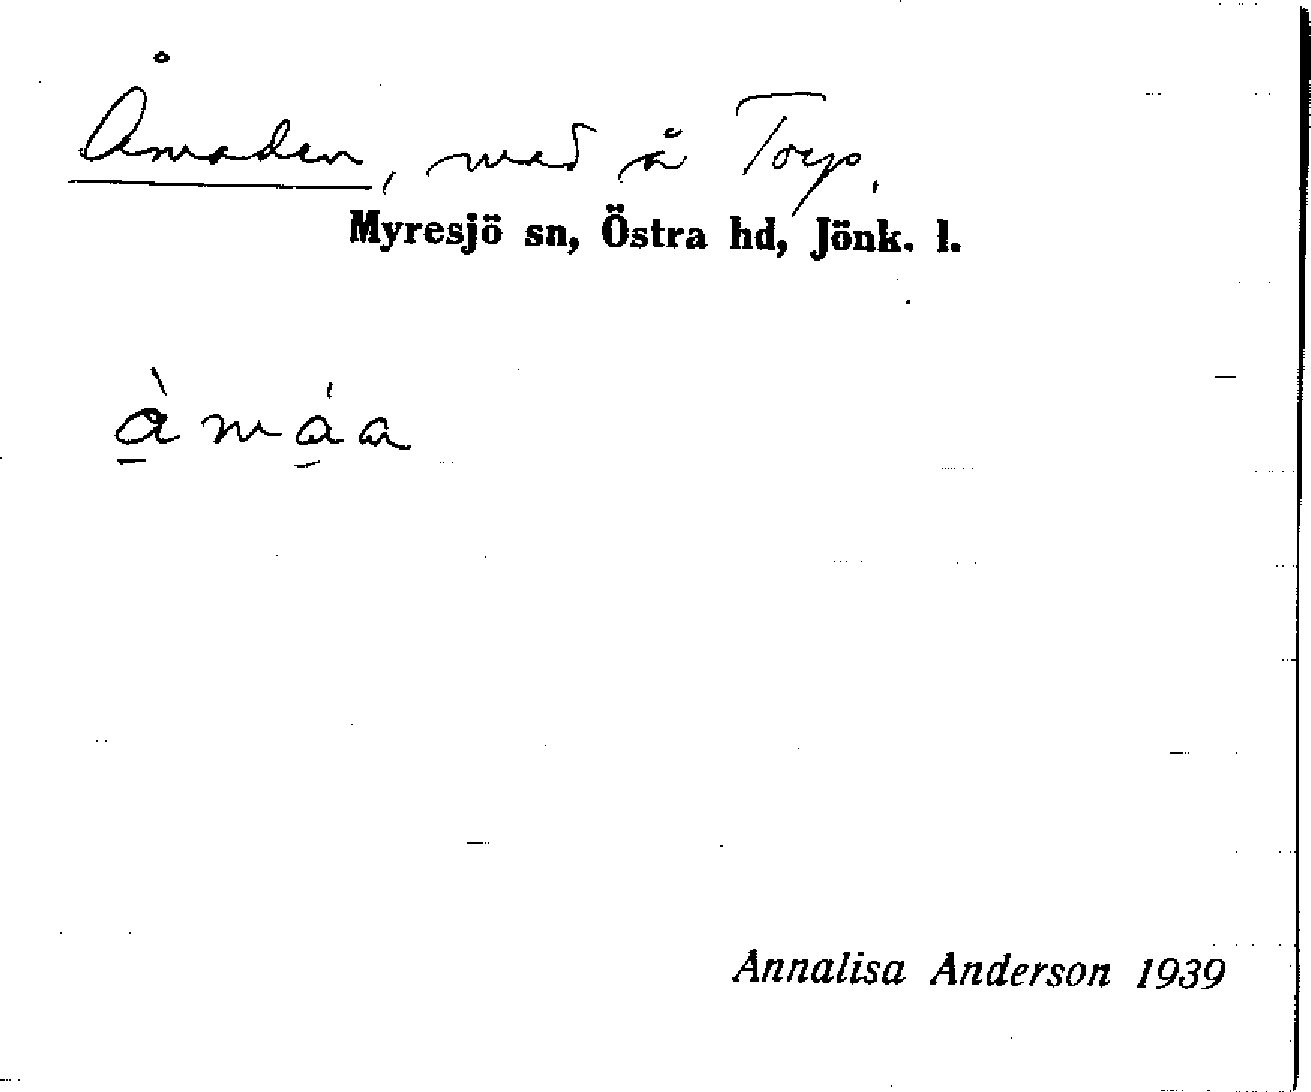 Åmaden, mad å Torp,
Myresjö sn, Östra hd, Jönk. l.
àmáa
Annalisa Anderson 1939